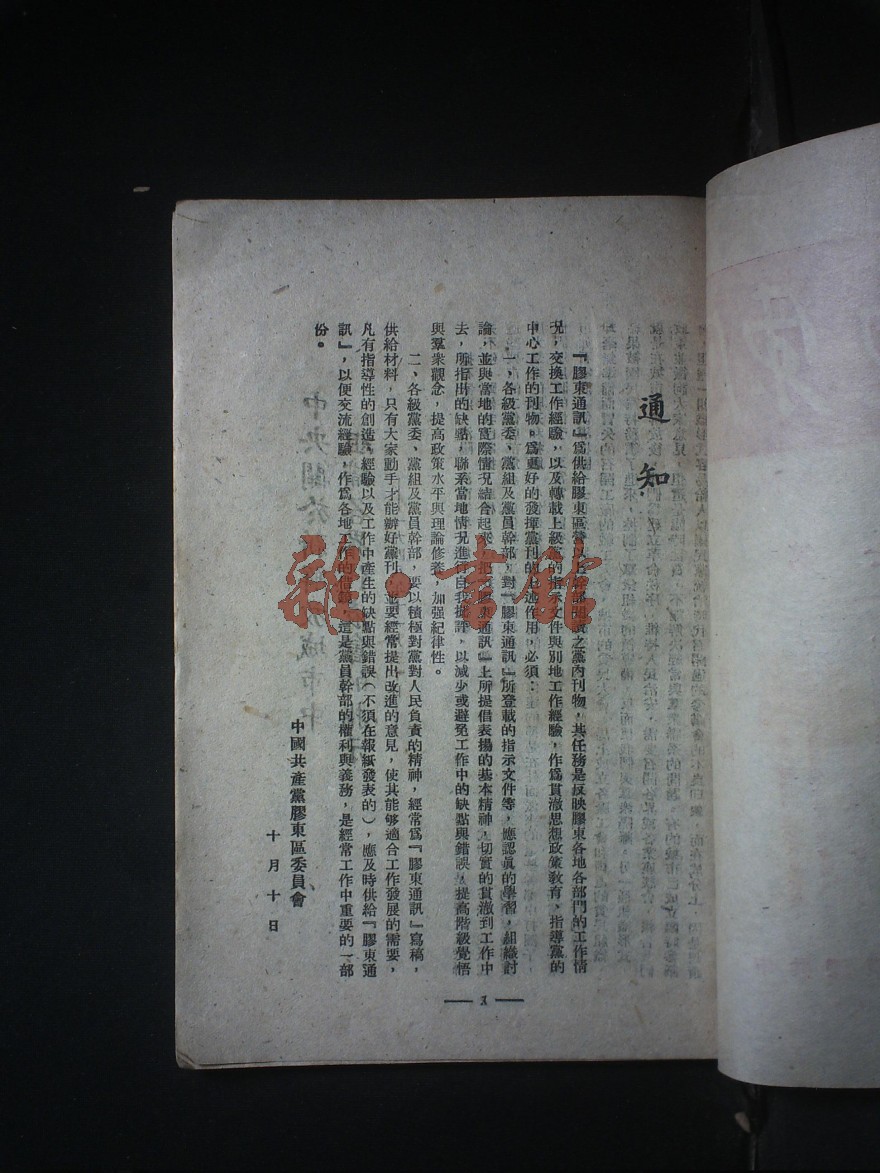 通知
『膠東通訊』爲供給膠東區營以上幹部閱讀之黨內刊物，其任務是反映膠東各地各部門的工作情
況，交換工作經驗，以及轉載上級黨的指示文件與別地工作經驗，作爲貫澈思想政策敎育、指導黨的
中心工作的刊物。爲更好的發揮黨刊的上述作用，必須：
一、各級黨委、黨組及黨員幹部，對『膠東通訊』所登載的指示文件等，應認眞的學習，組織討
論，並與當地的實際情況結合起來，把『膠東通訊』上所提倡表揚的基本精神，切實的貫澈到工作中
去，所指出的缺點，聯系當地情況進行自我批評，以減少或避免工作中的缺點與錯誤，提高階級覺悟
與羣衆觀念，提高政策水平與理論修養，加强紀律性。
二、各級黨委、黨組及黨員幹部，要以積極對黨對人民負責的精神，經常爲『膠東通訊』寫稿，
供給材料，只有大家動手才能辦好黨刊，並要經常提出改進的意見，使其能够適合工作發展的需要，
凡有指導性的創造、經驗以及工作中產生的缺點與錯誤（不須在報紙發表的），應及時供給『膠東通
訊』，以便交流經驗，作爲各地工作的借鏡，這是黨員幹部的權利與義務，是經常工作中重要的一部
份。
中國共產黨膠東區委員會
十月十日
1
雜·書館